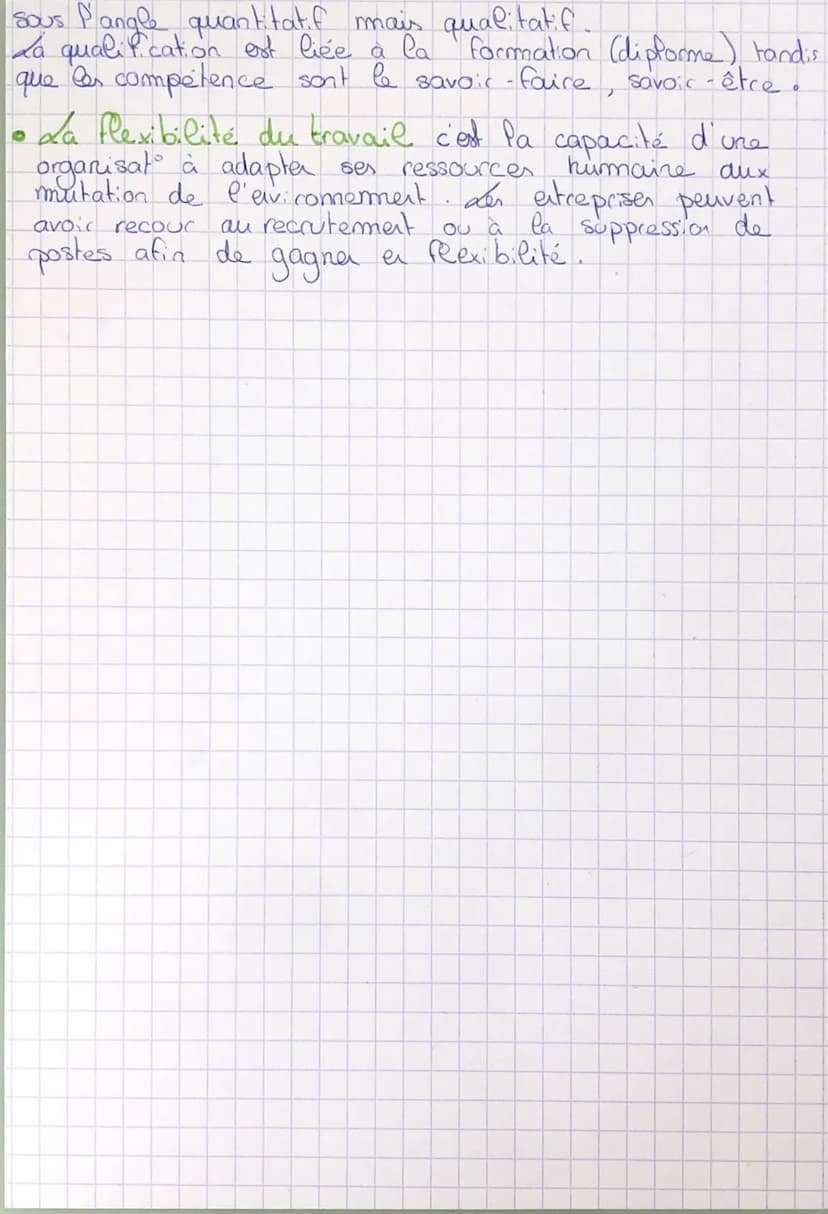 sous l'angle quantitatif mais qualitatif.
La qualification est liée à la formation (diplôme) tandis
que les compétence sont le savoir-faire, savoir-être.
• La flexibilité du travail c'est la capacité d'une
organisat° à adapter ses ressources humaine aux
mutation de l'environnement. Les entreprises peuvent
avoir recour au recrutement ou à la suppression de
postes afin de gagner en flexibilité.